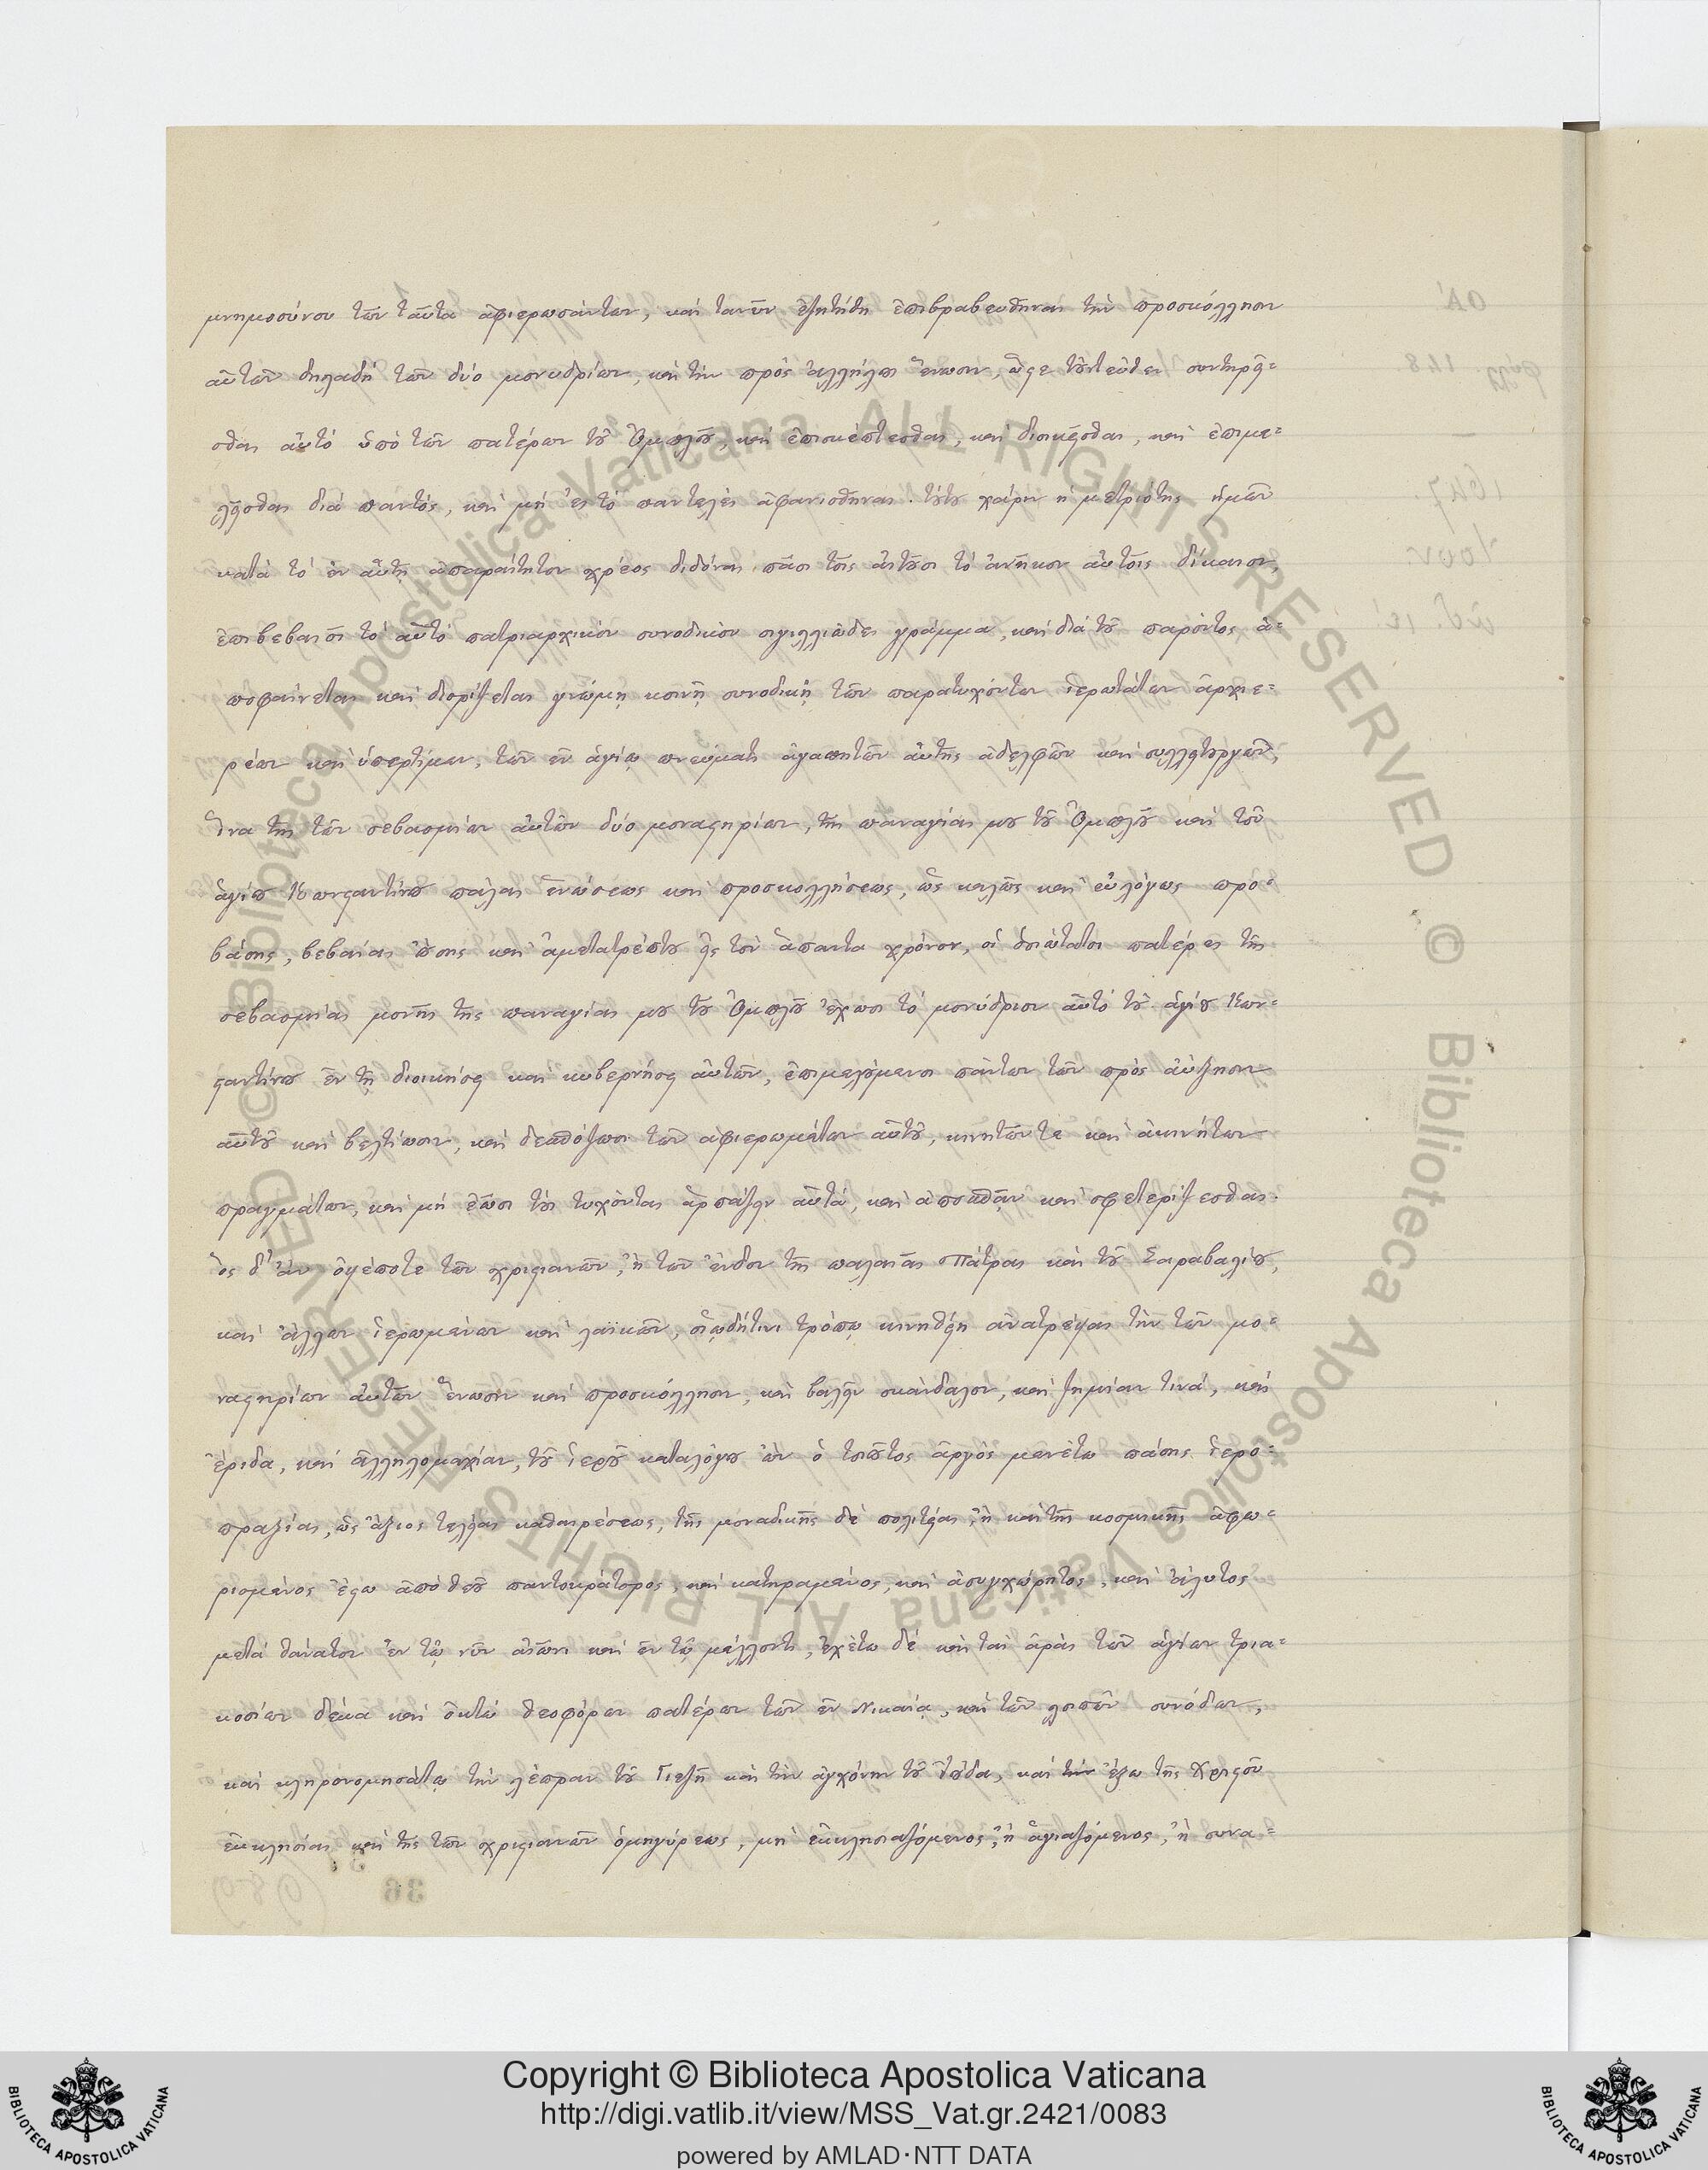 μνημοσύνου τῶν ταῦτα ἀφιερωσάντων, καὶ τανῦν ἐζητήθη ἐπιβραβευθῆναι τὴν προσκόλλησιν
αὐτῶν δηλαδὴ τῶν δύο μονυδρίων, καὶ τὴν πρὸς ἄλληλα ἕνωσιν, ὥςε τοὐντεῦθεν συντηρεῖ=
σθαι αὐτὸ ὑπὸ τῶν πατέρων τοῦ Ὀμπλοῦ, καὶ ἐπισκέπτεσθαι, καὶ διοικεῖσθαι, καὶ ἐπιμε=
λεῖσθαι διὰ παντός, καὶ μὴ εἰς τὸ παντελὲς ἀφανισθῆναι. τούτου χάριν ἡ μετριότης ἡμῶν
κατὰ τὸ ἐν αὐτῇ ἀπαραίτητον χρέος διδόναι πᾶσι τοῖς αἰτοῦσι τὸ ἀνῆκον αὐτοῖς δίκαιον,
ἐπιβεβαιοῖ τὸ αὐτὸ πατριαρχικὸν συνοδικὸν σιγιλλιῶδες γράμμα, καὶ διὰ τοῦ παρόντος ἀ=
ποφαίνεται καὶ διορίζεται γνώμῃ κοινῇ συνοδικῇ τῶν παρατυχόντων ἱερωτάτων ἀρχιε=
ρέων καὶ ὑπερτίμων, τῶν ἐν ἁγίῳ πνεύματι ἀγαπητῶν αὐτῆς ἀδελφῶν καὶ συλλειτουργῶν,
ἵνα τῆς τῶν σεβασμίων αὐτῶν δύο μοναςηρίων, τῆς παναγίας μου τοῦ Ὀμπλοῦ καὶ τοῦ
ἁγίου Κωνςαντίνου πάλαι ἑνώσεως καὶ προσκολλήσεως, ὡς καλῶς καὶ εὐλόγως προ=
βάσης, βεβαίας οὔσης καὶ ἀμετατρέπτου εἰς τὸν ἅπαντα χρόνον, οἱ ὁσιώτατοι πατέρες τῆς
σεβασμίας μονῆς τῆς παναγίας μου τοῦ Ὀμπλοῦ ἔχωσι τὸ μονύδριον αὐτὸ τοῦ ἁγίου Κων=
ςαντίνου ἐν τῇ διοικήσει καὶ κυβερνήσει αὐτῶν, ἐπιμελούμενοι πάντων τῶν πρὸς αὔξησιν
αὐτοῦ καὶ βελτίωσιν, καὶ δεσπόζωσι τῶν ἀφιερωμάτων αὐτοῦ, κινητῶν τε καὶ ἀκινήτων
πραγμάτων, καὶ μὴ ἐῶσι τοὺς τυχόντας ἁρπάζειν αὐτά, καὶ ἀποσπᾷν καὶ σφετερίζεσθαι.
ὃς δ' ἂν ὀψέποτε τῶν χριςιανῶν, ἢ τῶν ἔνδον τῆς παλαιᾶς Πάτρας καὶ τοῦ Σαραβαλίου,
καὶ ἄλλων ἱερωμένων καὶ λαϊκῶν, οἱῳδήτινι τρόπῳ κινηθείη ἀνατρέψαι τὴν τῶν μο=
ναςηρίων αὐτῶν ἕνωσιν καὶ προσκόλλησιν, καὶ βαλεῖν σκάνδαλον, καὶ ζημίαν τινά, καὶ
ἔριδα, καὶ ἀλληλομαχίαν, τοῦ ἱεροῦ καταλόγου ὢν ὁ τοιοῦτος ἀργὸς μενέτω πάσης ἱερο=
πραξίας, ὡς ἄξιος τελείας καθαιρέσεως, τῆς μοναδικῆς δὲ πολιτείας, ἢ καὶ τῆς κοσμικῆς ἀφω=
ρισμένος ἔςω ἀπὸ θεοῦ παντοκράτορος, καὶ κατηραμένος, καὶ ἀσυγχώρητος, καὶ ἄλυτος
μετὰ θάνατον ἐν τῷ νῦν αἰῶνι καὶ ἐν τῷ μέλλοντι, ἐχέτω δὲ καὶ τὰς ἀρὰς τῶν ἁγίων τρια=
κοσίων δέκα καὶ ὀκτὼ θεοφόρων πατέρων τῶν ἐν Νικαίᾳ, καὶ τῶν λοιπῶν συνόδων,
καὶ κληρονομησάτω τὴν λέπραν τοῦ Γιεζῆ καὶ τὴν ἀγχόνην τοῦ Ἰούδα, καὶ ἔξω τῆς Χριςοῦ
ἐκκλησίας καὶ τῆς τῶν χριςιανῶν ὁμηγύρεως, μὴ ἐκκλησιαζόμενος, ἢ ἁγιαζόμενος, ἢ συνα=
Copyright © Biblioteca Apostolica Vaticana
http://digi.vatlib.it/view/MSS_Vat.gr.2421/0083
powered by AMLAD·NTT DATA